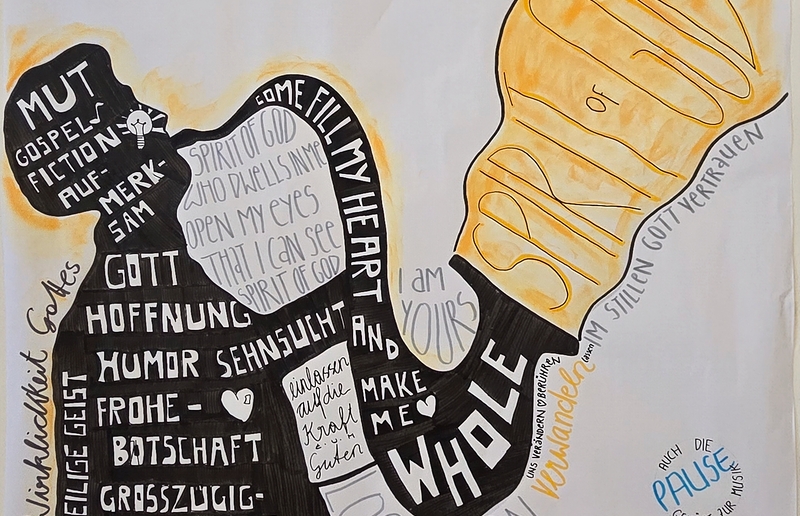 MUT
GOSPEL
FICTION
AUF-
MERK-
SAM
GOTT
HOFFNUNG
HUMOR SEHNSUCHT
FROHE-
BOTSCHAFT
GROSSZÜGIG-
EILIGE GEIST
Wirklichkeit Gottes
SPIRIT OF GOD
WHO DWELLS IN ME
OPEN MY EYES
THAT I CAN SEE
SPIRIT OF GOD
COME FILL MY HEART AND
MAKE
ME
WHOLE
einlassen
auf die
Kraft
Guten
I am
YOURS
SPIRIT OF
IM STILLEN GOTT VERTRAUEN
UNS VERÄNDERN BERÜHREN
verwandeln
AUCH DIE
PAUSE
ZUR MUSIK